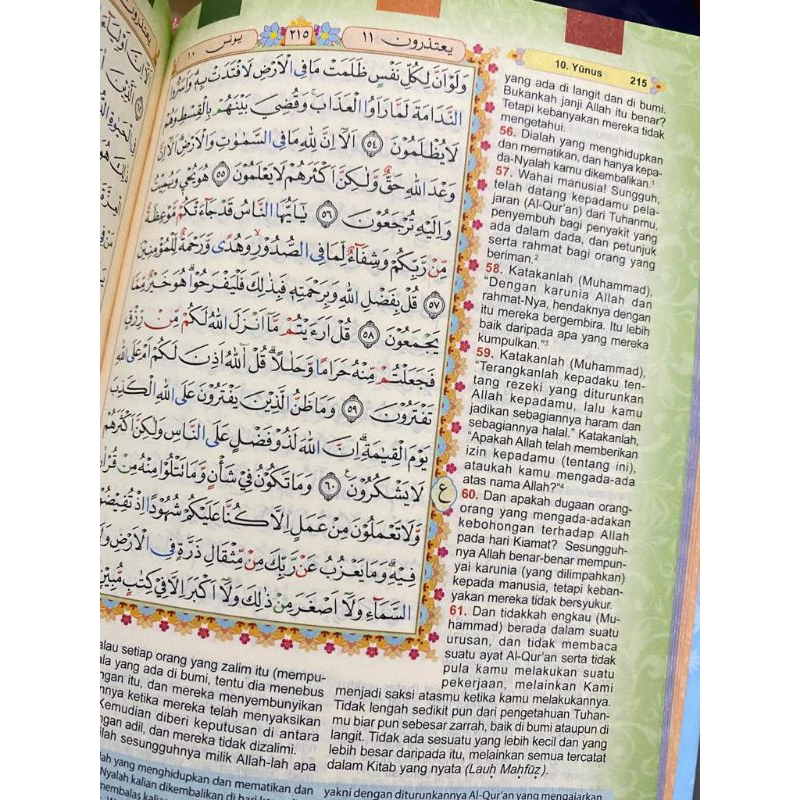 يعتذرون ١١
٢١٥
يونس ١٠
وَلَوْ اَنَّ لِكُلِّ نَفْسٍ ظَلَمَتْ مَا فِى الْاَرْضِ لَافْتَدَتْ بِهٖۗ وَاَسَرُّوا
النَّدَامَةَ لَمَّا رَاَوُا الْعَذَابَۚ وَقُضِيَ بَيْنَهُمْ بِالْقِسْطِ وَهُمْ
لَا يُظْلَمُوْنَ ٥٤ اَلَآ اِنَّ لِلّٰهِ مَا فِى السَّمٰوٰتِ وَالْاَرْضِۗ اَلَآ اِنَّ
وَعْدَ اللّٰهِ حَقٌّ وَّلٰكِنَّ اَكْثَرَهُمْ لَا يَعْلَمُوْنَ ٥٥ هُوَ يُحْيٖ وَيُمِيْتُ
وَاِلَيْهِ تُرْجَعُوْنَ ٥٦ يٰٓاَيُّهَا النَّاسُ قَدْ جَاۤءَتْكُمْ مَّوْعِظَةٌ
مِّنْ رَّبِّكُمْ وَشِفَاۤءٌ لِّمَا فِى الصُّدُوْرِۙ وَهُدًى وَّرَحْمَةٌ لِّلْمُؤْمِنِيْنَ
٥٧ قُلْ بِفَضْلِ اللّٰهِ وَبِرَحْمَتِهٖ فَبِذٰلِكَ فَلْيَفْرَحُوْاۗ هُوَ خَيْرٌ مِّمَّا
يَجْمَعُوْنَ ٥٨ قُلْ اَرَءَيْتُمْ مَّآ اَنْزَلَ اللّٰهُ لَكُمْ مِّنْ رِّزْقٍ
فَجَعَلْتُمْ مِّنْهُ حَرَامًا وَّحَلٰلًاۗ قُلْ اٰۤللّٰهُ اَذِنَ لَكُمْ اَمْ عَلَى اللّٰهِ
تَفْتَرُوْنَ ٥٩ وَمَا ظَنُّ الَّذِيْنَ يَفْتَرُوْنَ عَلَى اللّٰهِ الْكَذِبَ
يَوْمَ الْقِيٰمَةِۗ اِنَّ اللّٰهَ لَذُوْ فَضْلٍ عَلَى النَّاسِ وَلٰكِنَّ اَكْثَرَهُمْ
لَا يَشْكُرُوْنَ ٦٠ وَمَا تَكُوْنُ فِيْ شَأْنٍ وَّمَا تَتْلُوْا مِنْهُ مِنْ قُرْاٰنٍ
وَّلَا تَعْمَلُوْنَ مِنْ عَمَلٍ اِلَّا كُنَّا عَلَيْكُمْ شُهُوْدًا اِذْ تُفِيْضُوْنَ
فِيْهِۗ وَمَا يَعْزُبُ عَنْ رَّبِّكَ مِنْ مِّثْقَالِ ذَرَّةٍ فِى الْاَرْضِ وَلَا
السَّمَاۤءِ وَلَآ اَصْغَرَ مِنْ ذٰلِكَ وَلَآ اَكْبَرَ اِلَّا فِيْ كِتٰبٍ مُّبِيْنٍ
ع
alau setiap orang yang zalim itu (mempu-
ala yang ada di bumi, tentu dia menebus
ngan itu, dan mereka menyembunyikan
nnya ketika mereka telah menyaksikan
Kemudian diberi keputusan di antara
ngan adil, dan mereka tidak dizalimi.
ilah sesungguhnya milik Allah-lah apa
10. Yūnus
215
yang ada di langit dan di bumi.
Bukankah janji Allah itu benar?
Tetapi kebanyakan mereka tidak
mengetahui.
56. Dialah yang menghidupkan
dan mematikan, dan hanya kepa-
da-Nyalah kamu dikembalikan.¹
57. Wahai manusia! Sungguh,
telah datang kepadamu pela-
jaran (Al-Qur'an) dari Tuhanmu,
penyembuh bagi penyakit yang
ada dalam dada, dan petunjuk
serta rahmat bagi orang yang
beriman.²
58. Katakanlah (Muhammad),
"Dengan karunia Allah dan
rahmat-Nya, hendaknya dengan
itu mereka bergembira. Itu lebih
baik daripada apa yang mereka
kumpulkan."³
59. Katakanlah (Muhammad),
"Terangkanlah kepadaku ten-
tang rezeki yang diturunkan
Allah kepadamu, lalu kamu
jadikan sebagiannya haram dan
sebagiannya halal." Katakanlah,
"Apakah Allah telah memberikan
izin kepadamu (tentang ini),
ataukah kamu mengada-ada
atas nama Allah?"⁴
60. Dan apakah dugaan orang-
orang yang mengada-adakan
kebohongan terhadap Allah
pada hari Kiamat? Sesungguh-
nya Allah benar-benar mempun-
yai karunia (yang dilimpahkan)
kepada manusia, tetapi keban-
yakan mereka tidak bersyukur.
61. Dan tidakkah engkau (Mu-
hammad) berada dalam suatu
urusan, dan tidak membaca
suatu ayat Al-Qur'an serta tidak
pula kamu melakukan suatu
pekerjaan, melainkan Kami
menjadi saksi atasmu ketika kamu melakukannya.
Tidak lengah sedikit pun dari pengetahuan Tuhan-
mu biar pun sebesar zarrah, baik di bumi ataupun di
langit. Tidak ada sesuatu yang lebih kecil dan yang
lebih besar daripada itu, melainkan semua tercatat
dalam Kitab yang nyata (Lauḥ Maḥfūẓ).
lah yang menghidupkan dan mematikan dan
Nyalah kalian dikembalikan di hari
membalas kalian
yakni dengan diturunkannya Al-Qur'an yang mengajarkan